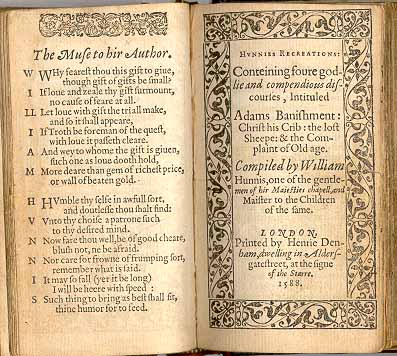 The Muse to hir Author.
W WHy fearest thou this gift to giue,
though gift of gifts be small?
I If loue and zeale thy gift surmount,
no cause of feare at all.
LL Let loue with gift the triall make,
and so it shall appeare,
I If Troth be foreman of the quest,
with loue it passeth cleare.
A And wey to whome the gift is giuen,
such one as loue dooth hold,
M More deare than gem of richest price,
or wall of beaten gold.
H HVmble thy selfe in awfull sort,
and doutlesse thou shalt find:
V Vnto thy choise a patrone such
to thy desired mind.
N Now fare thou well, be of good cheare,
blush not, ne be afraid.
N Nor care for frowne of frumping sort,
remember what is said.
I It may so fall (yer it be long)
I will be heere with speed:
S Such thing to bring as best shall fit,
thine humor for to feed.
HVNNIES RECREATIONS:
Conteining foure god-
lie and compendious dis-
courses, Intituled
Adams Banishment:
Christ his Crib: the lost
Sheepe: & the Com-
plaint of Old age.
Compiled by William
Hunnis, one of the gentle-
men of hir Maiesties chapell, and
Maister to the Children
of the same.
LONDON,
Printed by Henrie Den-
ham, dwelling in Alders-
gatestreet, at the signe
of the Starre.
1588.